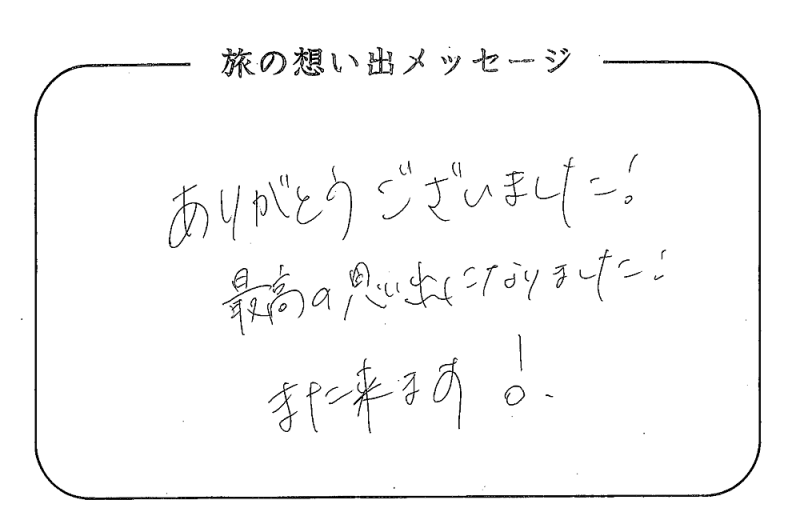 旅の想い出メッセージ
ありがとうございました!
最高の思い出になりました!
また来ます!